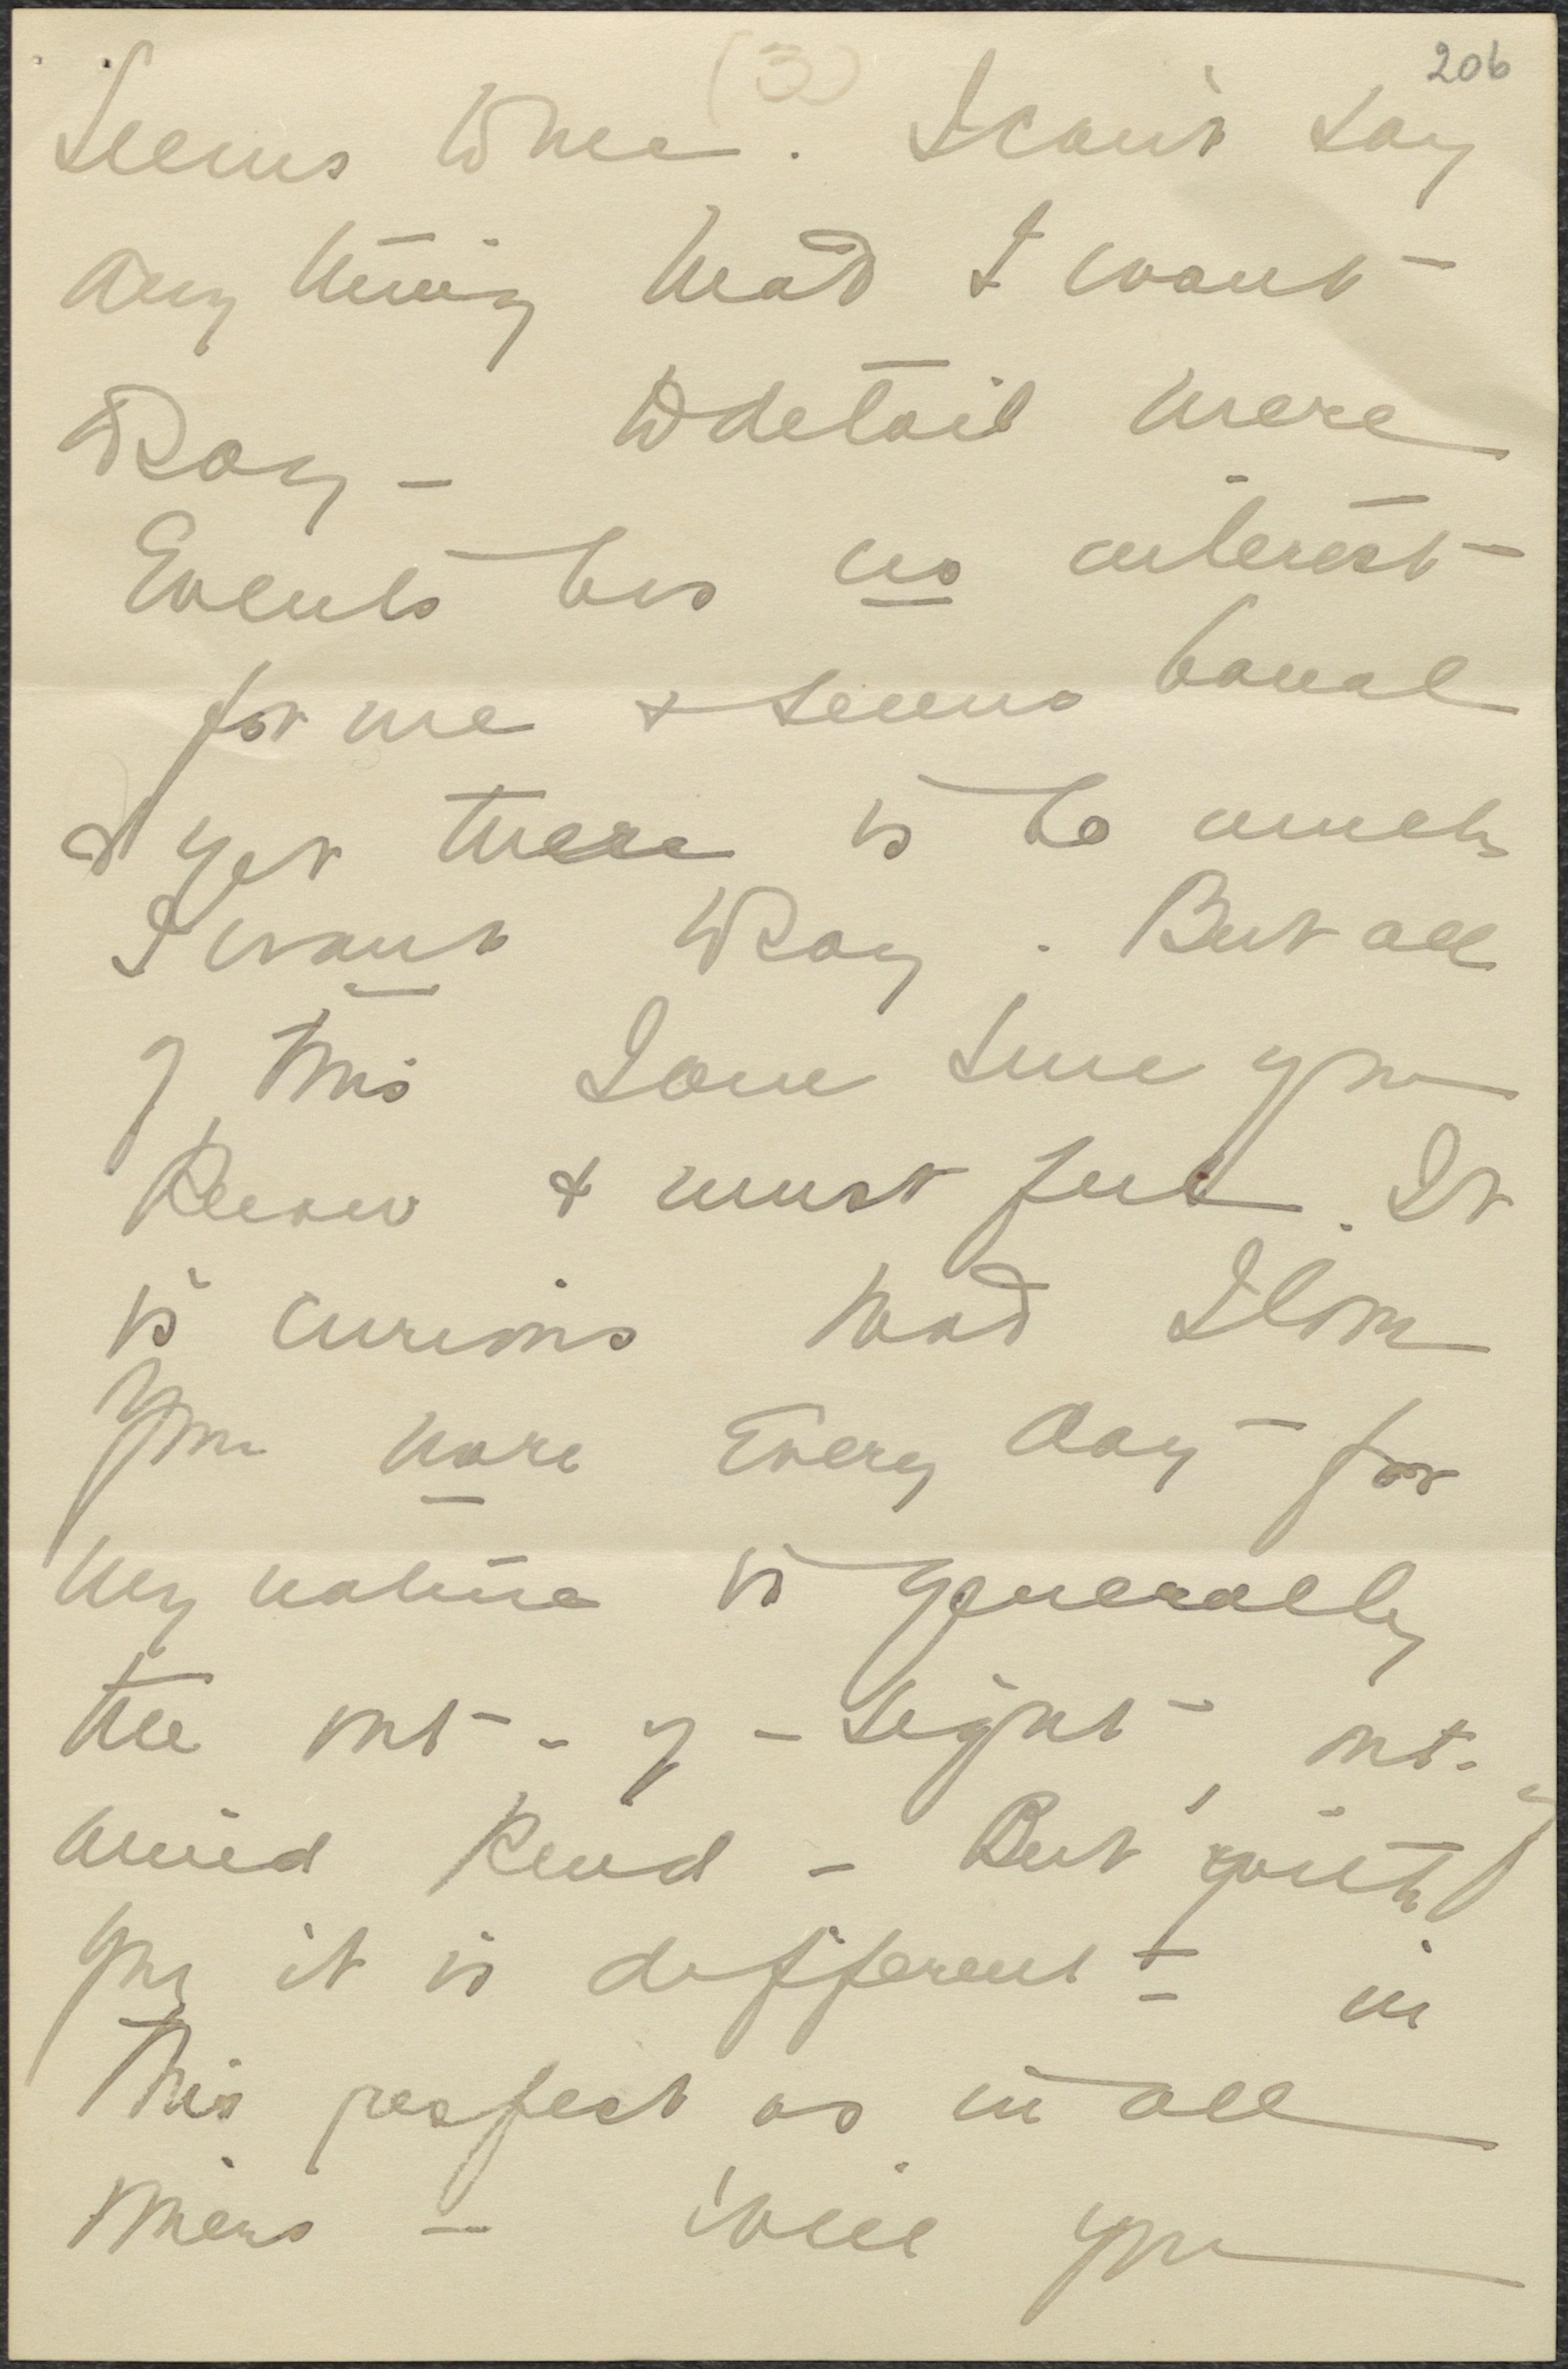 (3) 206
Seems to me. I can't say
any thing that I want
to say — to detail mere
Events has no interest
for me & seems banal
& yet there is so much
I want to say. But all
of this I am sure you
Know & must feel. It
is curious that I love
you more Every day — for
my nature is generally
the out - of - sight, out - of
mind Kind — But with
you it is different — in
this perfect as in all
others — will you